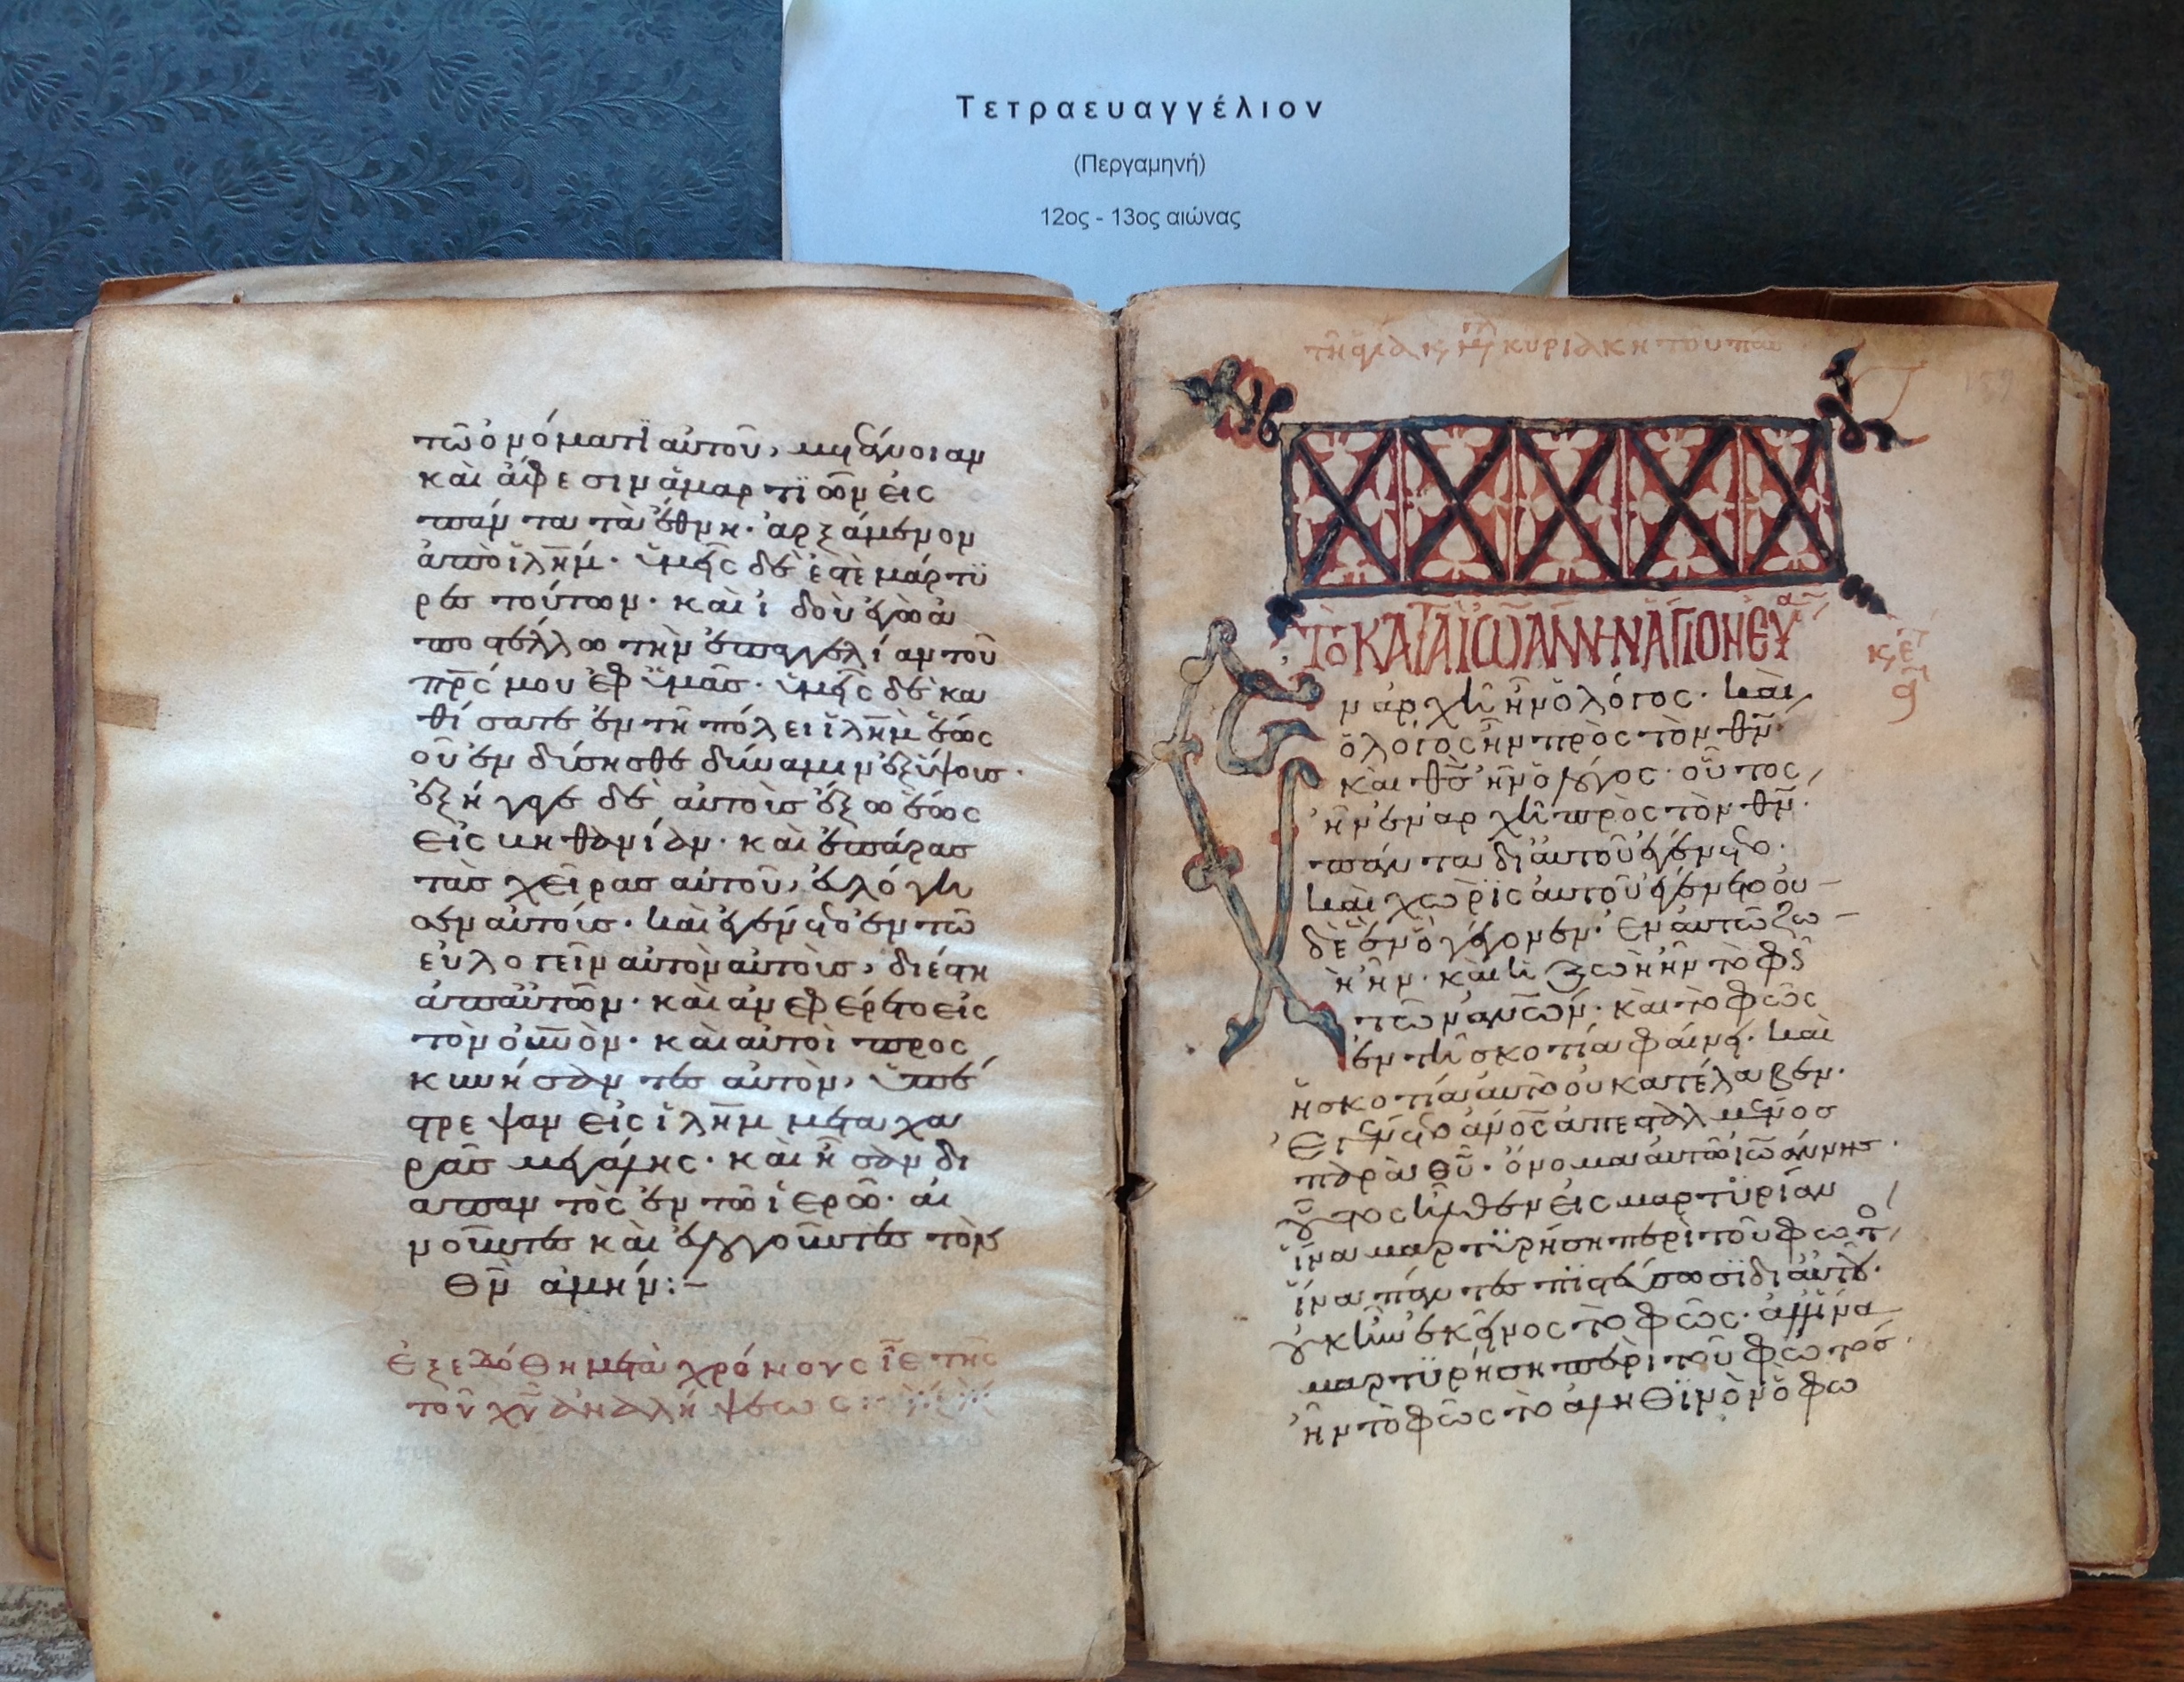 Τετραευαγγέλιον
(Περγαμηνή)
12ος - 13ος αιώνας
τῶ ὀνόματϊ αὐτοῦ, μετάνοιαν
καὶ ἄφεσιν ἁμαρτϊῶν εἰς
πάντα τὰ ἔθνη· ἀρξάμενον
ἀπὸ ἰλῆμ· ὑμεῖς δὲ ἐστὲ μάρτϋ
ρες τούτων· καὶ ἰδοὺ ἐγὼ ἀ
ποστέλλω τὴν ἐπαγγελίαν τοῦ
πρς μου ἐφ ὑμᾶς· ὑμεῖς δὲ κα
θίσατε ἐν τῆ πόλει ἰλῆμ ἕως
οὗ ἐνδύσησθε δύναμιν ἐξ ὕψους·
ἐξήγαγε δὲ αὐτοὺς ἔξω ἕως
εἰς βηθανίαν· καὶ ἐπάρας
τὰς χεῖρας αὐτοῦ, εὐλόγη
σεν αὐτούς· καὶ ἐγένετο ἐν τῶ
εὐλογεῖν αὐτὸν αὐτοὺς, διέστη
ἀπ αὐτῶν· καὶ ἀνεφέρετο εἰς
τὸν οὐνὸν· καὶ αὐτοὶ προς
κυνήσαντες αὐτὸν, ὑπέ
στρεψαν εἰς ἰλῆμ μετα χα
ρᾶς μεγάλης· καὶ ἦσαν δι
απαντὸς ἐν τῶ ἱερῶ· αἰ
νοῦντες καὶ εὐλογοῦντες τὸν
θν ἀμήν:–
Ἐξεδόθη μετὰ χρόνους ιε τῆς
τοῦ χυ ἀναλήψεως
τῆ ἁγία κ, μεγ κυριακῆ τοῦ πασ
ΤὸΚΑΤΑ ἸΩΑΝΝΗΝ ἍΓΙΟΝ ΕΥΑ
Ἐν ἀρχῆ ἦν ὁ λόγος· καὶ
ὁ λόγος ἦν πρὸς τὸν θν·
καὶ θς ἦν ὁ λόγος· οὗτος
ἦν ἐν ἀρχῆ πρὸς τὸν θν·
πάντα δι αὐτοῦ ἐγένετο·
καὶ χωρὶς αὐτοῦ ἐγένετο οὐ
δὲ ἓν ὃ γέγονεν· ἐν αὐτῶ ζω
ὴ ἦν· καὶ ἡ ζωὴ ἦν τὸ φῶς
τῶν ἀνων· καὶ τὸ φῶς
ἐν τῆ σκοτία φαίνει· καὶ
ἡ σκοτία αὐτὸ οὐ κατέλαβεν·
Ἐγένετο ἀνος ἀπεσταλμένος
παρὰ θυ· ὄνομα αὐτῶ ἰωάννης·
οὗτος ἦλθεν εἰς μαρτϋρίαν
ἵνα μαρτϋρήση περὶ τοῦ φωτ
ἵνα πάντες πϊστεύσωσϊ δι αὐτοῦ·
οὐκ ἦν ἐκεῖνος τὸ φῶς· ἀλλ ἵνα
μαρτϋρήση περὶ τοῦ φωτός·
ἦν τὸ φῶς τὸ ἀληθϊνὸν ὃ φω